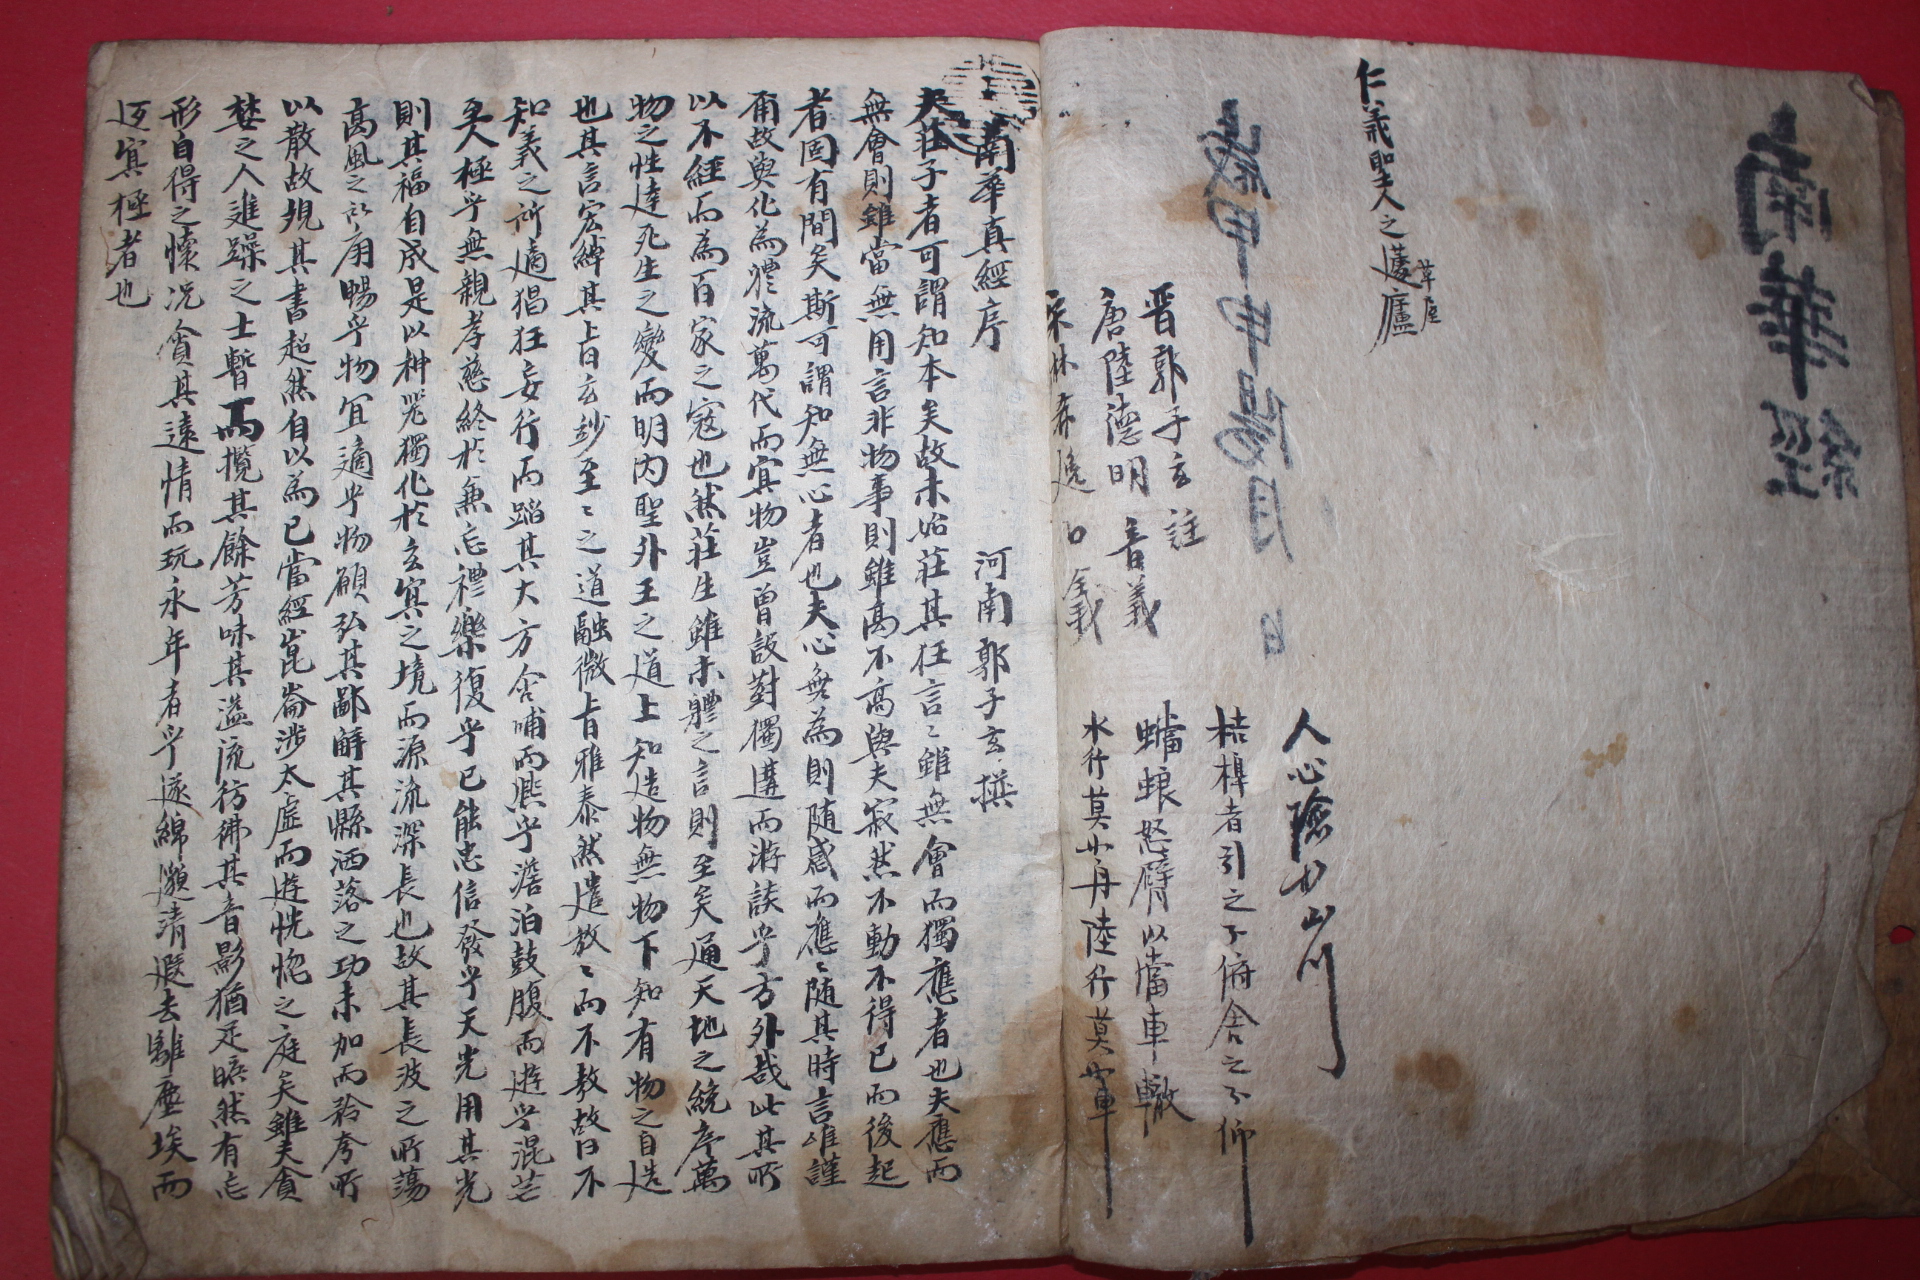 南華經
仁義聖人之蘧廬
草屋
人心險於山川
桔橰者引之則俯舍之則仰
蟷蜋怒臂以當車轍
水行莫如舟陸行莫如車
歲甲申陽月 日
晋郭子玄註
唐陸德明音義
宋林希逸口義
南華真經序 河南郭子玄撰
夫莊子者可謂知本矣故未始莊其狂言〻雖無會而獨應者也夫應而
無會則雖當無用言非物事則雖高不高與夫寂然不動不得已而後起
者固有間矣斯可謂知無心者也夫心無為則随感而應〻随其時言唯謹
爾故與化為軆流萬代而冥物豈曾設對獨遘而游談乎方外哉此其所
以不經而為百家之冠也然莊生雖未軆之言則至矣通天地之統序萬
物之性達死生之變而明内聖外王之道上知造物無物下知有物之自造
也其言宏綽其旨玄玅至〻之道融微旨雅泰然遣放〻而不敖故曰不
知義之所適猖狂妄行而蹈其大方含哺而熈乎澹泊鼓腹而遊乎混芒
至人極乎無親孝慈終於兼忘禮樂復乎已能忠信發乎天光用其光
則其福自成是以神器獨化於玄冥之境而源流深長也故其長波之所蕩
高風之所扇暢乎物冝適乎物願弘其鄙解其縣洒落之功未加而矜夸所
以散故觀其書超然自以為已當經崑崙涉太虛而遊恍惚之庭矣雖夫貪
婪之人進躁之士暫而攬其餘芳味其溢流彷彿其音影猶足曠然有忘
形自得之懷况貪其遠情而玩永年者乎遂綿邈清遐去離塵埃而
返冥極者也